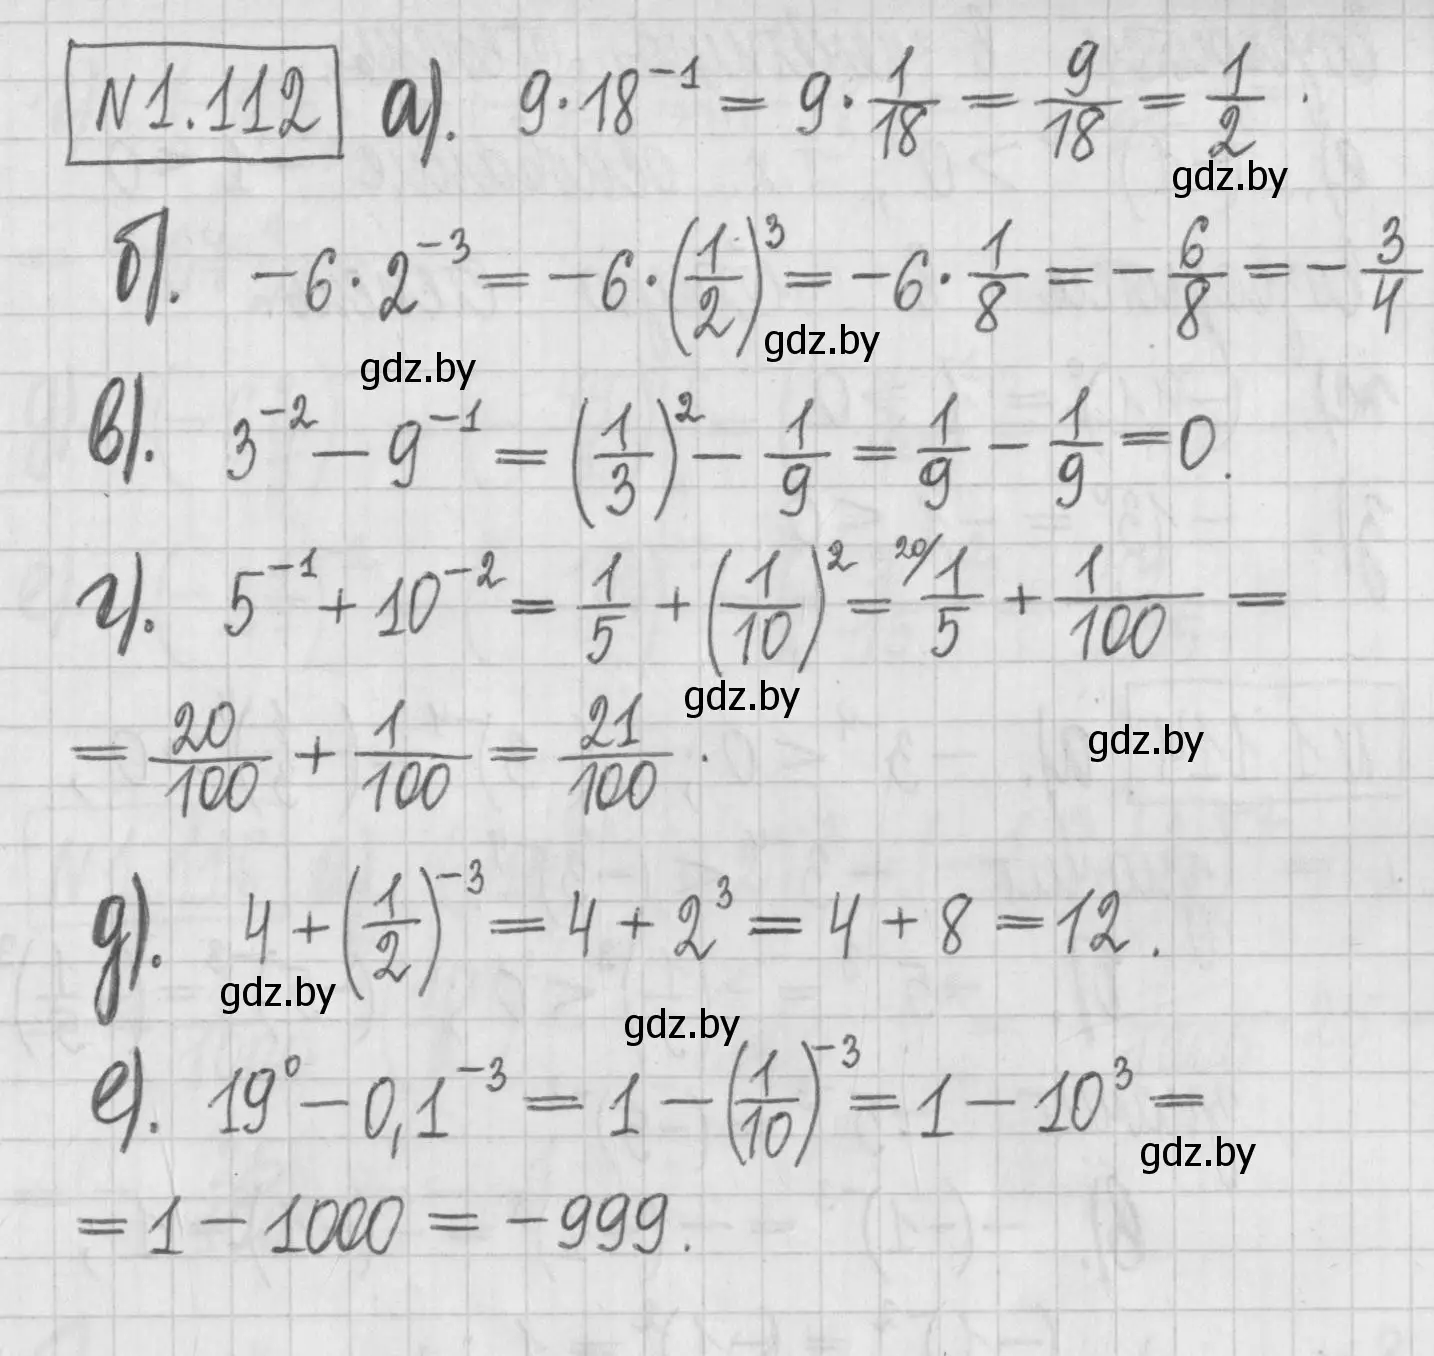 №1.112 а). 9·18⁻¹ = 9·1/18 = 9/18 = 1/2.
gdz.by
б). -6·2⁻³ = -6·(1/2)³ = -6·1/8 = -6/8 = -3/4
gdz.by
gdz.by
в). 3⁻² - 9⁻¹ = (1/3)² - 1/9 = 1/9 - 1/9 = 0.
г). 5⁻¹ + 10⁻² = 1/5 + (1/10)² = ²⁰⁄1/5 + 1/100 =
gdz.by
= 20/100 + 1/100 = 21/100.
gdz.by
д). 4 + (1/2)⁻³ = 4 + 2³ = 4 + 8 = 12.
gdz.by
gdz.by
е). 19⁰ - 0,1⁻³ = 1 - (1/10)⁻³ = 1 - 10³ =
gdz.by
= 1 - 1000 = -999.